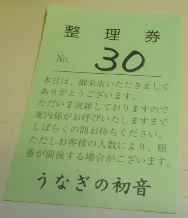 整理券
No. 30
本日は、御来店いただきまして
ありがとうございます。
ただいま混雑しておりますので
案内係がお呼びいたしますまで
しばらくの間お待ちください。
ただしお客様の人数により、順
番が前後する場合がございます。
うなぎの初音